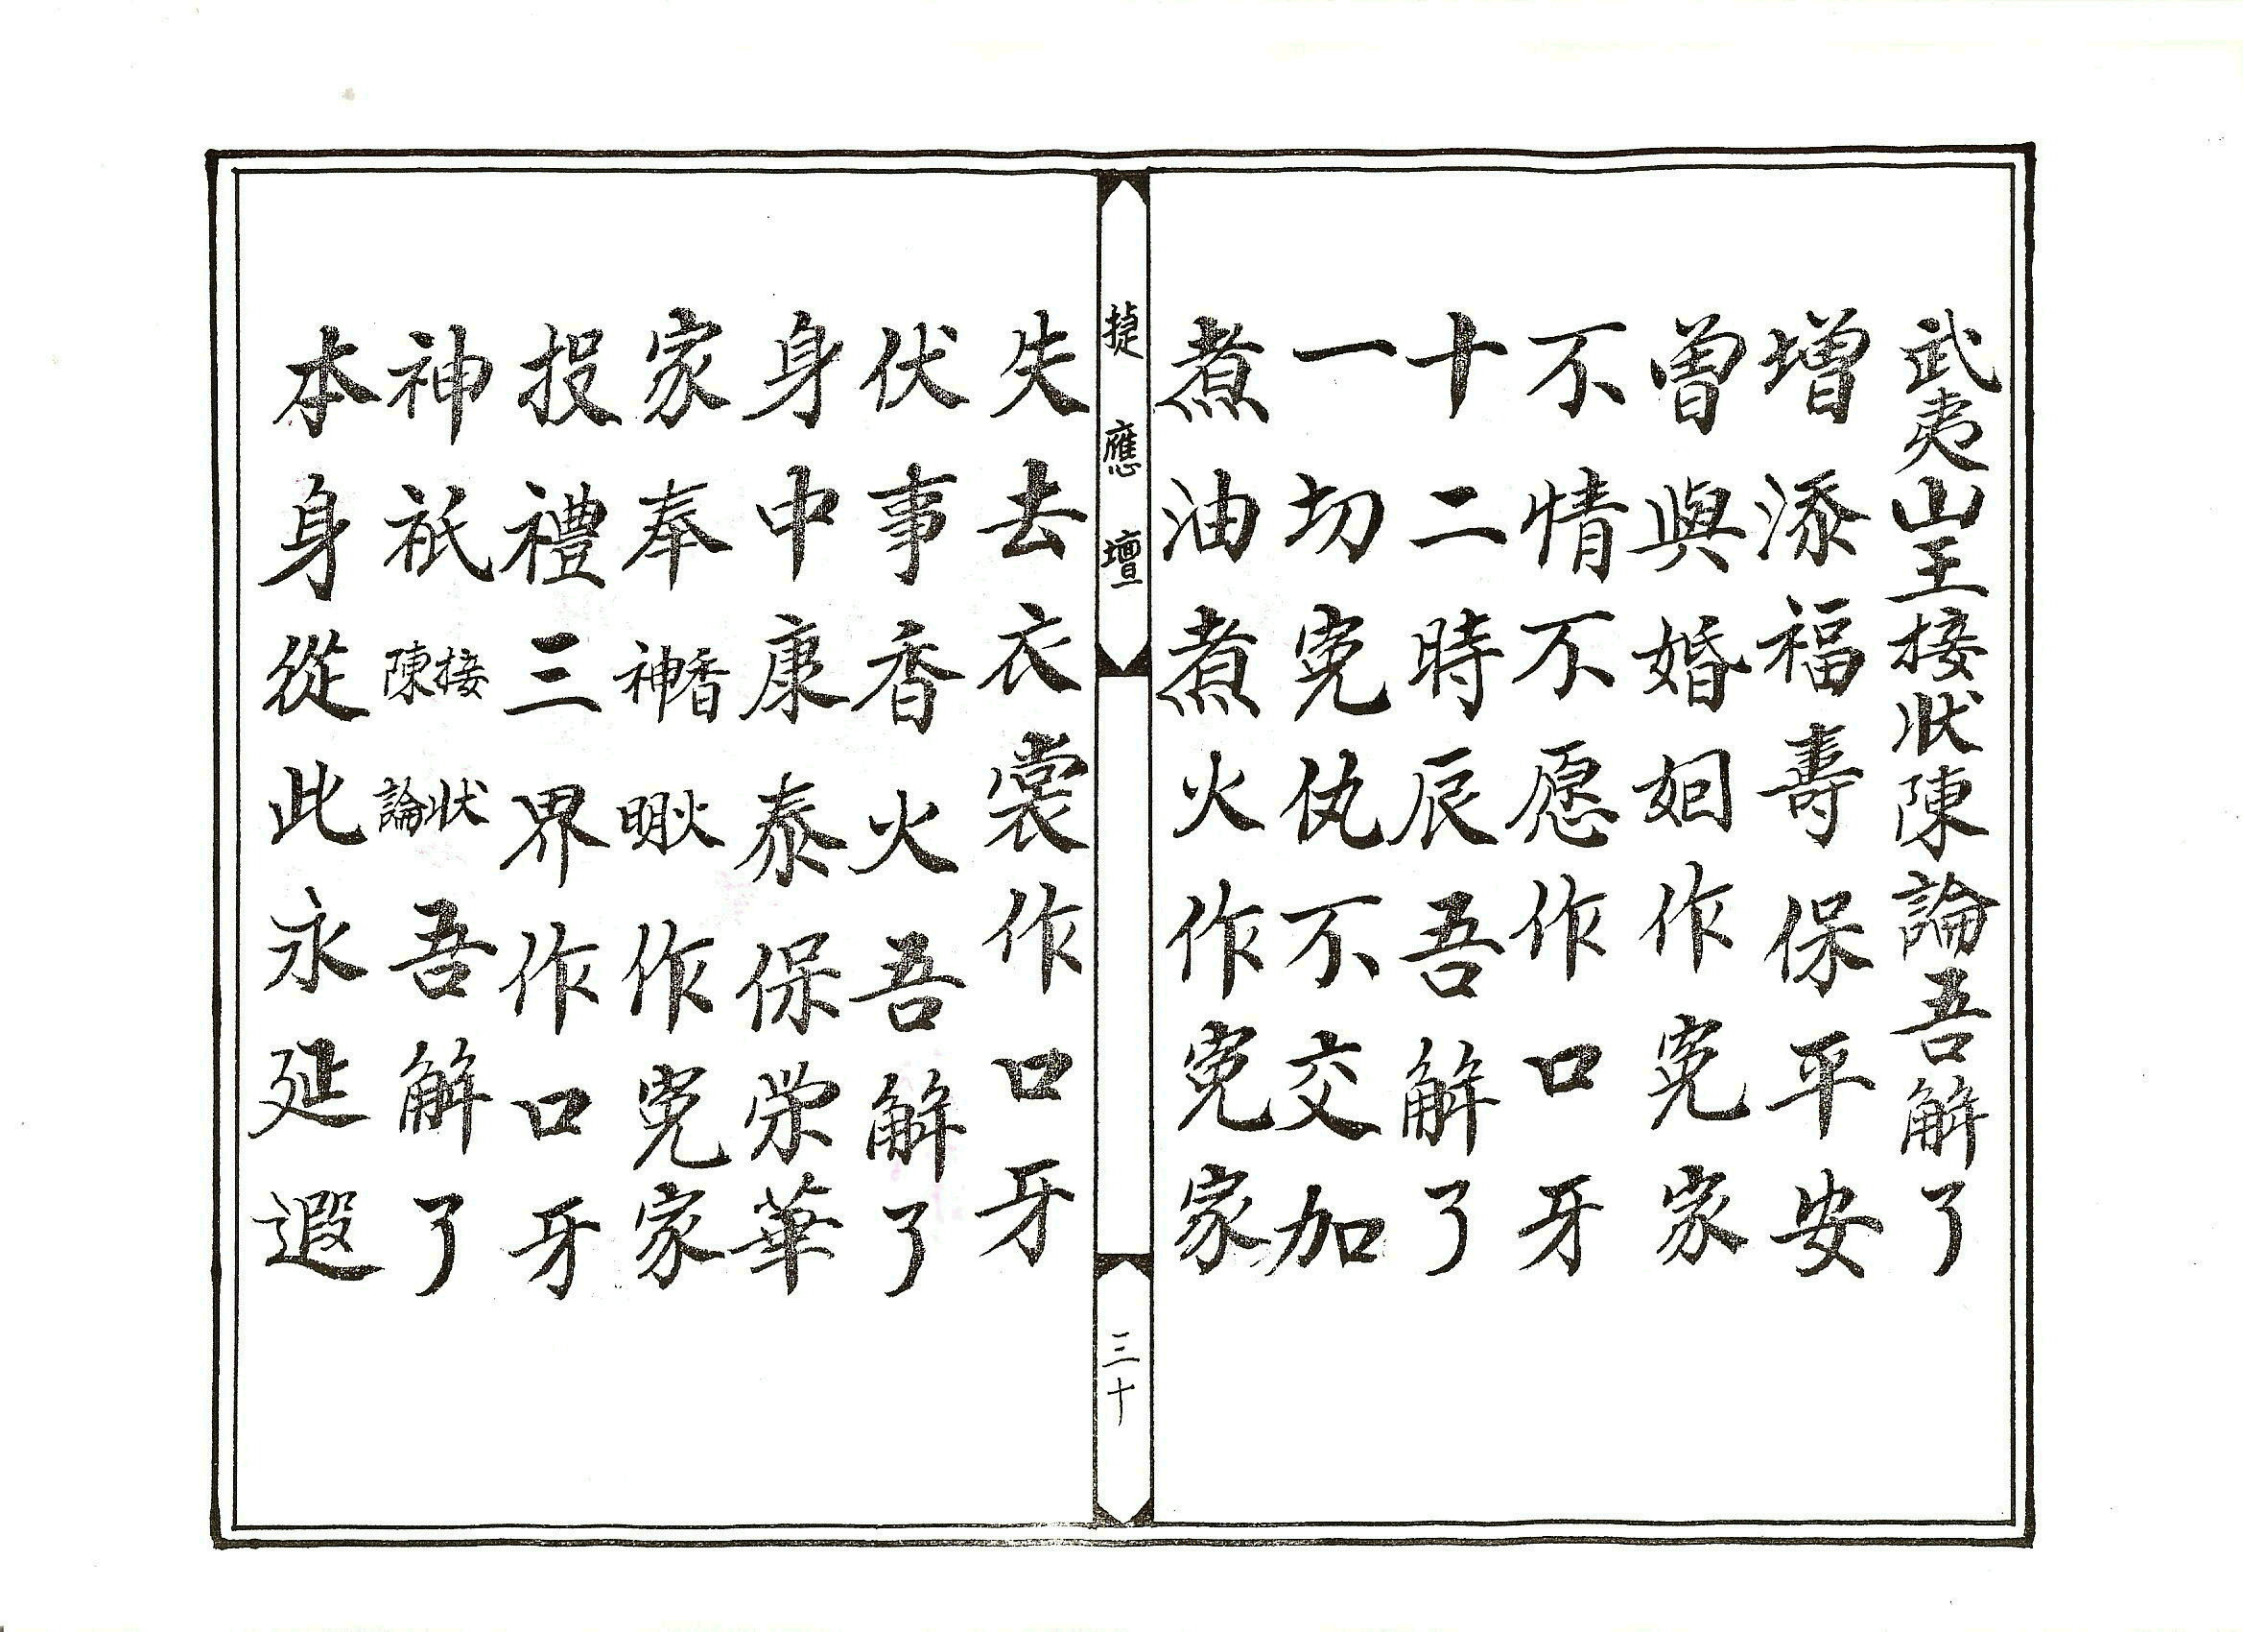 武夷山王接状陳論吾解了
增添福壽保平安
曾與婚姻作寃家
不情不愿作口牙
十二時辰吾解了
一切寃仇不交加
煮油煮火作寃家
捷應壇
三十
失去衣裳作口牙
伏事香火吾解了
身中康泰保荣華
家奉香火神明作寃家
投禮三界作口牙
神祇接状陳論吾解了
本身從此永延遐